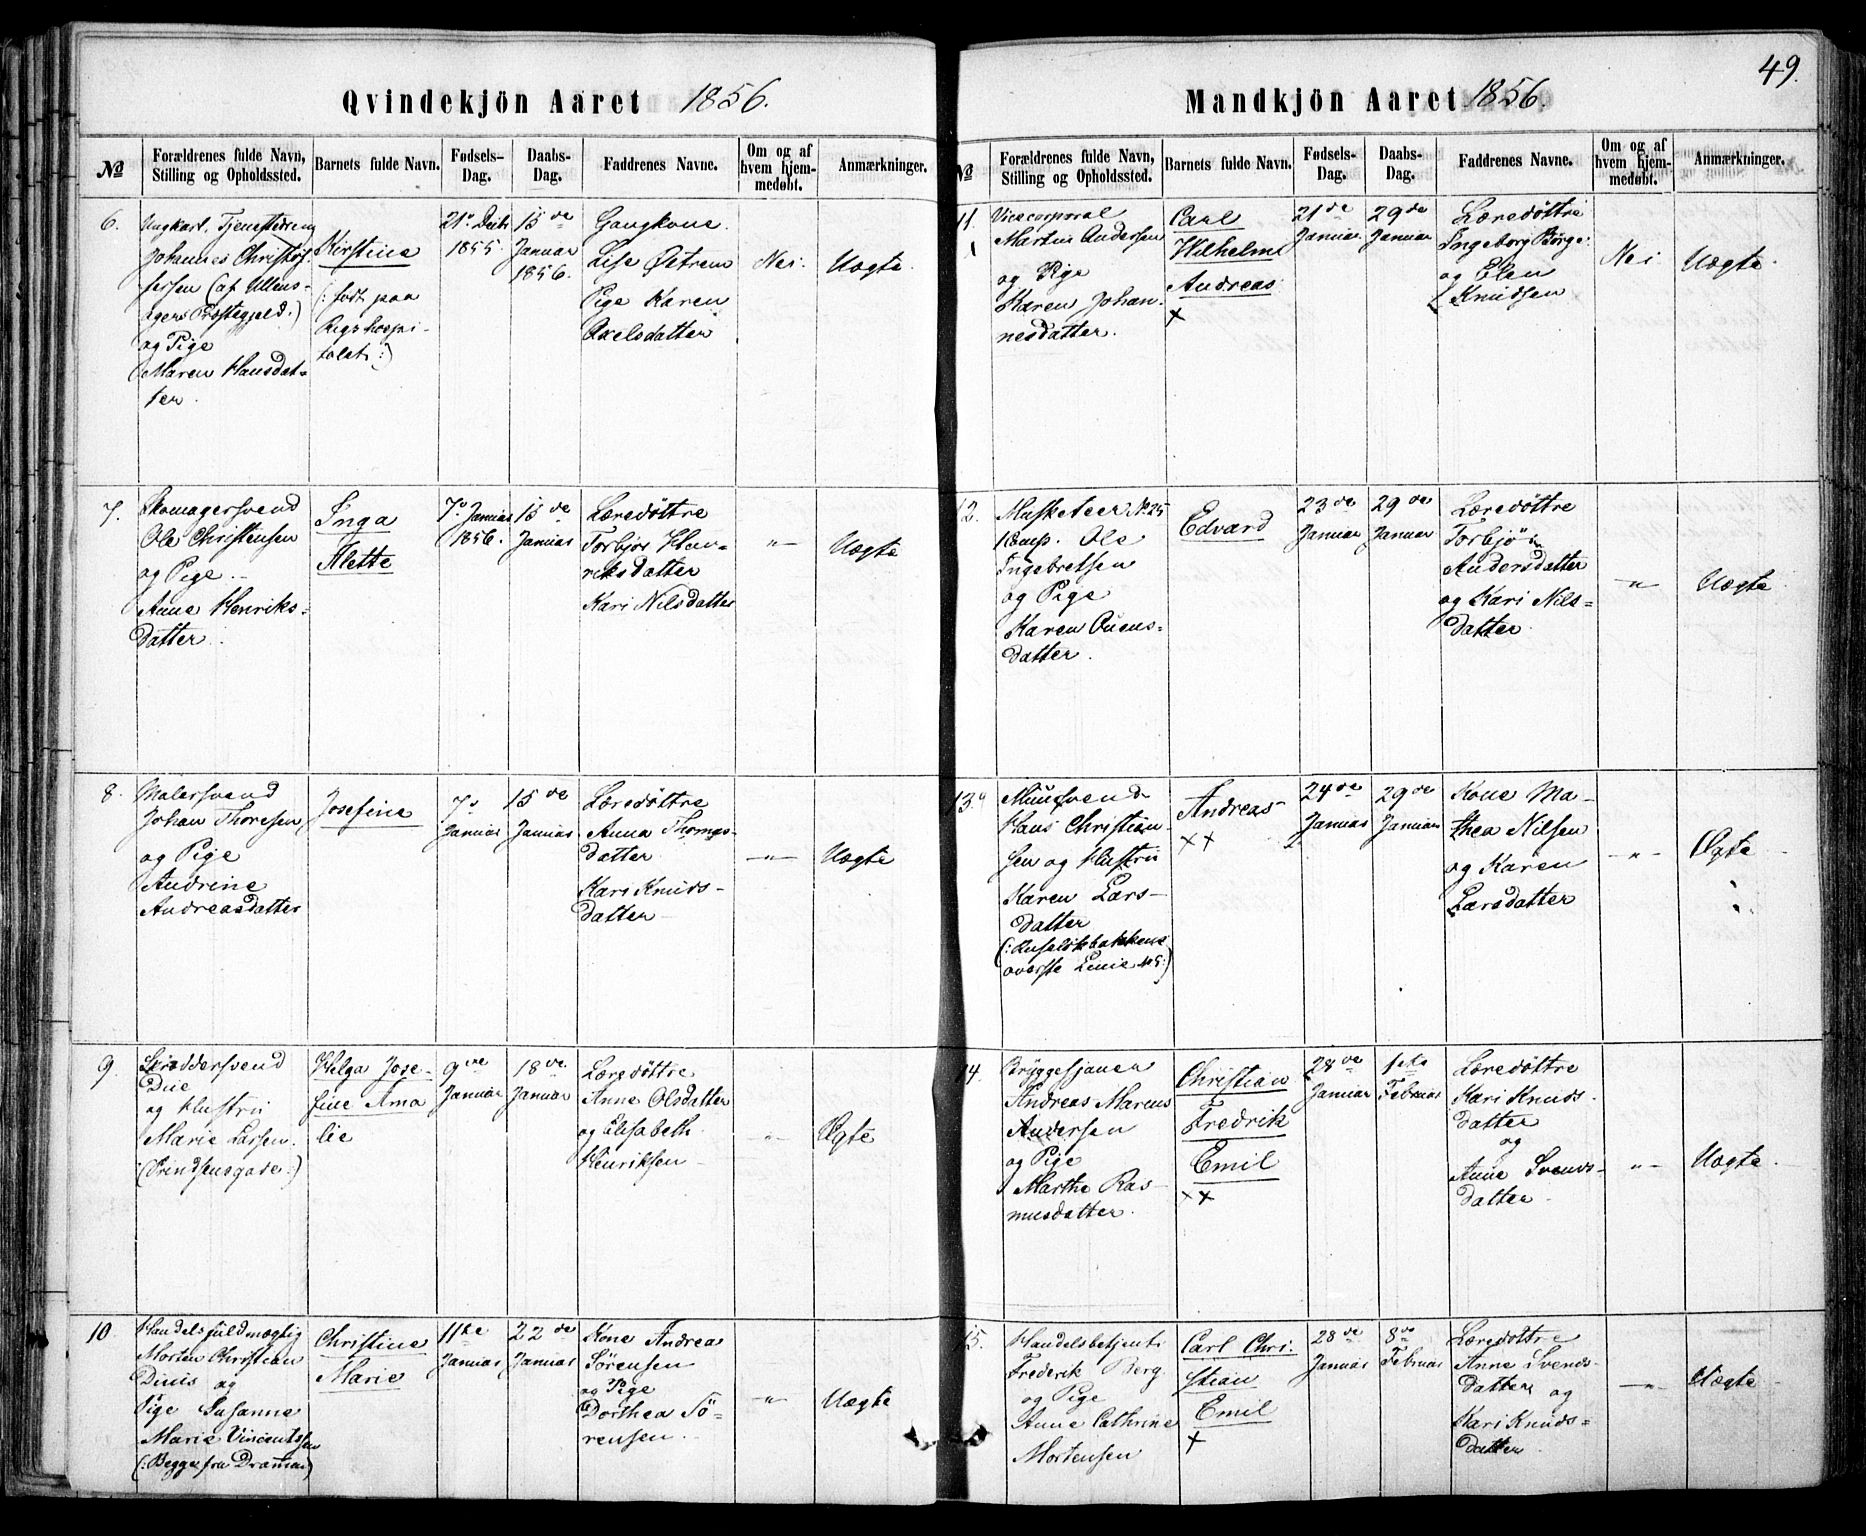 49.
Qvindekjön Aaret 1856.
No
Forældrenes fulde Navn,
Stilling og Opholdssted.
Barnets fulde Navn.
Fødsels-
Dag.
Daabs-
Dag.
Faddrenes Navne.
Om og af
hvem hjem-
medøbt.
Anmærkninger.
6.
Ungkarl, Tjenestedreng
Johannes Christof-
fersen (af Ullens-
agers Præstegjeld.)
og Pige
Maren Hansdat-
ter.
Kirstine
(: født paa
Rigshospi-
talet :)
21de Decbr
1855.
15de
Januar
1856.
Gangkone
Lise Østrem
Pige Karen
Axelsdatter
Nei.
Uægte.
7.
Skomagersvend
Ole Christensen
og Pige
Anne Henriks-
datter.
Inga
Alette
7de Januar
1856.
15de
Januar
Læredøttre
Torbjør Hen-
riksdatter
Kari Nilsdatter
—"—
Uægte
8.
Malersvend
Johan Thoresen
og Pige
Andrine
Andreasdatter
Josefine
7de
Januar
15de
Januar
Læredøttre
Anna Thomas-
datter
Kari Knuds-
datter
—"—
Uægte
9.
Skræddersvend
Due
og Hustru
Marie Larsen.
(Prindsensgade:)
Helga Jose-
fine Ama
lie
9de
Januar
18de
Januar
Læredøttre
Anne Olsdatter
og Elisabeth
Henriksen
—"—
Ægte
10.
Handelsfuldmægtig
Morten Christian
og
Pige Susanne
Marie Vincentssen
(: Begge fra Drammen)
Christine
Marie
11te
Januar
22de
Januar
Kone Andrea
Sörensen
og Pige
Dorthea Sö-
rensen.
—"—
Uægte
Mandkjön Aaret 1856.
No
Forældrenes fulde Navn,
Stilling og Opholdssted.
Barnets fulde Navn.
Fødsels-
Dag.
Daabs-
Dag.
Faddrenes Navne.
Om og af
hvem hjem-
medøbt.
Anmærkninger.
11.
Vicecorporal
Martin Andersen
og Pige
Karen Johan-
nesdatter.
Carl
Wilhelm
Andreas
×
21de
Januar
29de
Januar
Læredøttre
Ingeborg Börge
og Elen
Knudsen
Nei
Uægte
12.
Musketeer No. 25
Komp. Ole
Ingebretsen
og Pige
Karen
datter.
Edvard
23de
Januar
29de
Januar
Læredøttre
Torbjör
Andersdatter
og Kari Nils-
datter
—"—
Uægte
13.
Muursvend
Hans Christian-
sen og Hustru
Karen Lars-
datter
(: Ruseløkbakkens
øverste Linie No 5:)
Andreas
××
24de
Januar
29de
Januar
Kone Ma-
thea Nilsen
og Karen
Larsdatter
—"—
Ægte
14.
Bryggesjauer
Andreas Marcus
Andersen
og Pige
Marthe Ras-
musdatter.
Christian
Fredrik
Emil
××
28de
Januar
1ste
Februar
Læredøttre
Kari Knuds-
datter
og
Anne Svends-
datter
—"—
Uægte
15.
Handelsbetjent
Frederik Berg
og Pige
Anne Cathrine
Mortensen
Carl Chri-
stian
Emil
×
28de
Januar
8de
Februar
Læredøttre
Anne Svends-
datter og
Kari Knuds-
datter
—"—
Uægte